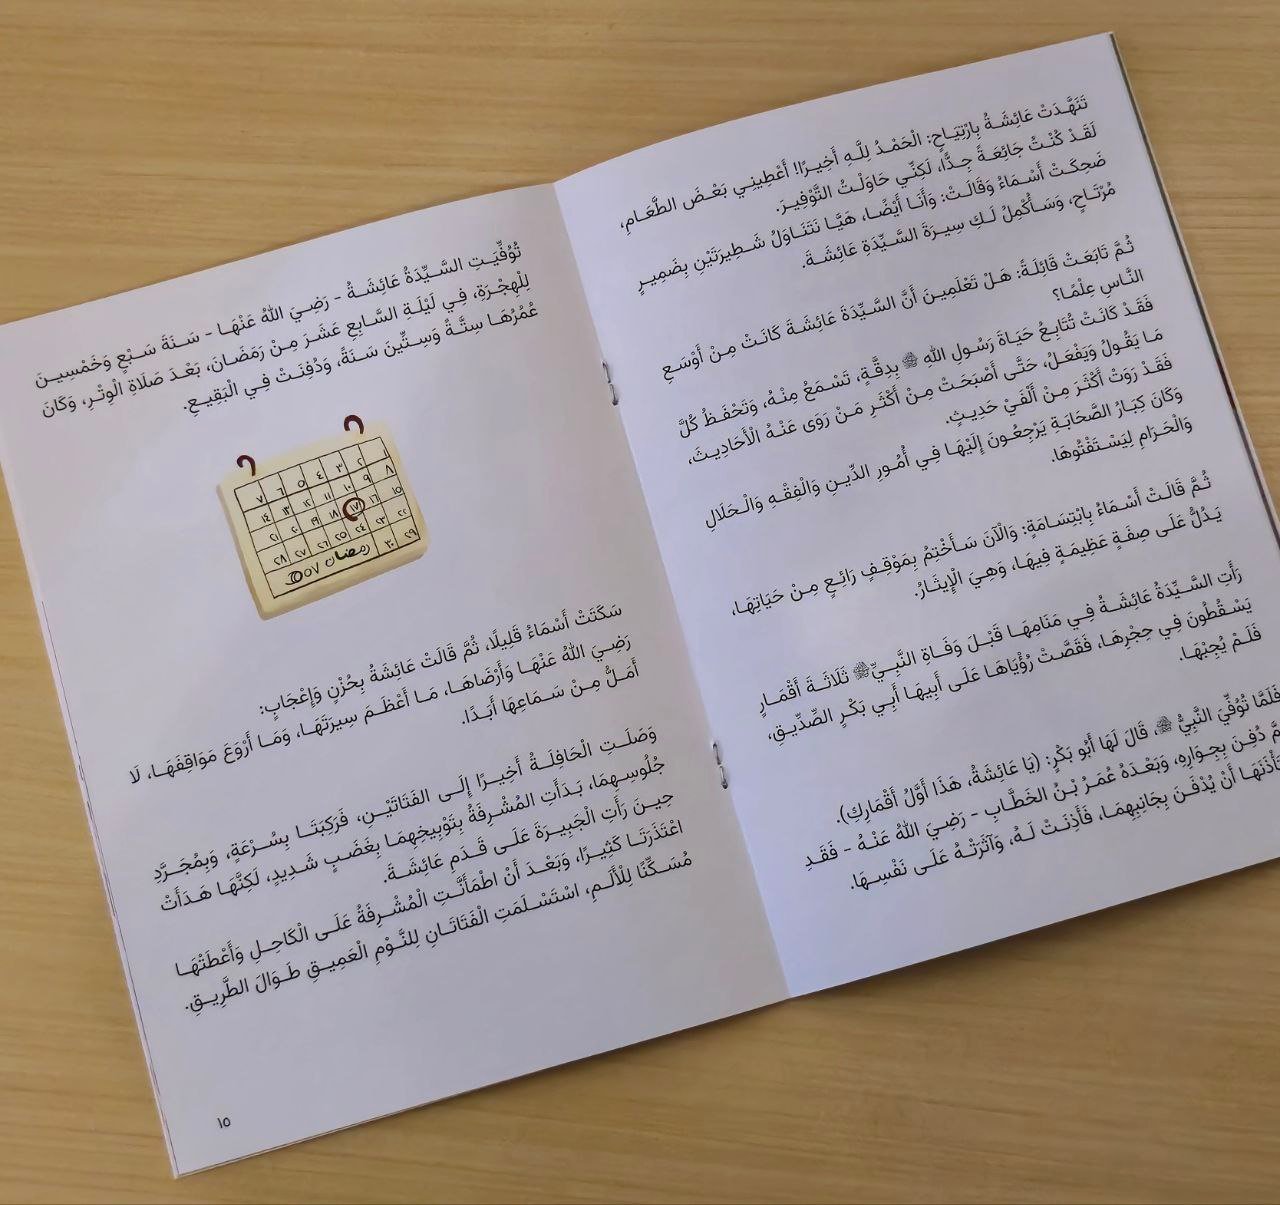 تَنَهَّدَتْ عَائِشَةُ بِارْتِيَاحٍ: الْحَمْدُ لِلَّهِ أَخِيرًا! أَعْطِينِي بَعْضَ الطَّعَامِ،
لَقَدْ كُنْتُ جَائِعَةً جِدًّا، لَكِنِّي حَاوَلْتُ التَّوْفِيرَ.
ضَحِكَتْ أَسْمَاءُ وَقَالَتْ: وَأَنَا أَيْضًا، هَيَّا نَتَنَاوَلُ شَطِيرَتَيْنِ بِضَمِيرٍ
مُرْتَاحٍ، وَسَأُكْمِلُ لَكِ سِيرَةَ السَّيِّدَةِ عَائِشَةَ.
ثُمَّ تَابَعَتْ قَائِلَةً: هَلْ تَعْلَمِينَ أَنَّ السَّيِّدَةَ عَائِشَةَ كَانَتْ مِنْ أَوْسَعِ
النَّاسِ عِلْمًا؟
فَقَدْ كَانَتْ تُتَابِعُ حَيَاةَ رَسُولِ اللهِ ﷺ بِدِقَّةٍ، تَسْمَعُ مِنْهُ، وَتَحْفَظُ كُلَّ
مَا يَقُولُ وَيَفْعَلُ، حَتَّى أَصْبَحَتْ مِنْ أَكْثَرِ مَنْ رَوَى عَنْهُ الْأَحَادِيثَ،
فَقَدْ رَوَتْ أَكْثَرَ مِنْ أَلْفَيْ حَدِيثٍ.
وَكَانَ كِبَارُ الصَّحَابَةِ يَرْجِعُونَ إِلَيْهَا فِي أُمُورِ الدِّينِ وَالْفِقْهِ وَالْحَلَالِ
وَالْحَرَامِ لِيَسْتَفْتُوهَا.
ثُمَّ قَالَتْ أَسْمَاءُ بِابْتِسَامَةٍ: وَالْآنَ سَأَخْتِمُ بِمَوْقِفٍ رَائِعٍ مِنْ حَيَاتِهَا،
يَدُلُّ عَلَى صِفَةٍ عَظِيمَةٍ فِيهَا، وَهِيَ الْإِيثَارُ.
رَأَتِ السَّيِّدَةُ عَائِشَةُ فِي مَنَامِهَا قَبْلَ وَفَاةِ النَّبِيِّ ﷺ ثَلَاثَةَ أَقْمَارٍ
يَسْقُطُونَ فِي حِجْرِهَا، فَقَصَّتْ رُؤْيَاهَا عَلَى أَبِيهَا أَبِي بَكْرٍ الصِّدِّيقِ،
فَلَمْ يُجِبْهَا.
فَلَمَّا تُوُفِّيَ النَّبِيُّ ﷺ، قَالَ لَهَا أَبُو بَكْرٍ: (يَا عَائِشَةُ، هَذَا أَوَّلُ أَقْمَارِكِ).
دُفِنَ بِجِوَارِهِ، وَبَعْدَهُ عُمَرُ بْنُ الخَطَّابِ - رَضِيَ اللهُ عَنْهُ - فَقَدِ
أَنْ يُدْفَنَ بِجَانِبِهِمَا، فَأَذِنَتْ لَهُ، وَآثَرَتْهُ عَلَى نَفْسِهَا.
تُوُفِّيَتِ السَّيِّدَةُ عَائِشَةُ - رَضِيَ اللهُ عَنْهَا - سَنَةَ سَبْعٍ وَخَمْسِينَ
لِلْهِجْرَةِ، فِي لَيْلَةِ السَّابِعِ عَشَرَ مِنْ رَمَضَانَ، بَعْدَ صَلَاةِ الْوِتْرِ، وَكَانَ
عُمُرُهَا سِتَّةً وَسِتِّينَ سَنَةً، وَدُفِنَتْ فِي الْبَقِيعِ.
١ ٢ ٣ ٤ ٥ ٦ ٧
٨ ٩ ١٠ ١١ ١٢ ١٣ ١٤
١٥ ١٦ ١٧ ١٨ ١٩ ٢٠ ٢١
٢٢ ٢٣ ٢٤ ٢٥ ٢٦ ٢٧ ٢٨
٢٩ ٣٠ رمضان ٥٧
سَكَتَتْ أَسْمَاءُ قَلِيلًا، ثُمَّ قَالَتْ عَائِشَةُ بِحُزْنٍ وَإِعْجَابٍ:
رَضِيَ اللهُ عَنْهَا وَأَرْضَاهَا، مَا أَعْظَمَ سِيرَتَهَا، وَمَا أَرْوَعَ مَوَاقِفَهَا، لَا
أَمَلُّ مِنْ سَمَاعِهَا أَبَدًا.
وَصَلَتِ الْحَافِلَةُ أَخِيرًا إِلَى الفَتَاتَيْنِ، فَرَكِبَتَا بِسُرْعَةٍ، وَبِمُجَرَّدِ
جُلُوسِهِمَا، بَدَأَتِ المُشْرِفَةُ بِتَوْبِيخِهِمَا بِغَضَبٍ شَدِيدٍ، لَكِنَّهَا هَدَأَتْ
حِينَ رَأَتِ الْجَبِيرَةَ عَلَى قَدَمِ عَائِشَةَ.
اعْتَذَرَتَا كَثِيرًا، وَبَعْدَ أَنْ اطْمَأَنَّتِ الْمُشْرِفَةُ عَلَى الْكَاحِلِ وَأَعْطَتْهَا
مُسَكِّنًا لِلْأَلَمِ، اسْتَسْلَمَتِ الْفَتَاتَانِ لِلنَّوْمِ الْعَمِيقِ طَوَالَ الطَّرِيقِ.
١٥